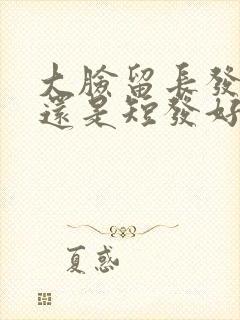 大臉留長發
還是短發好
夏惑